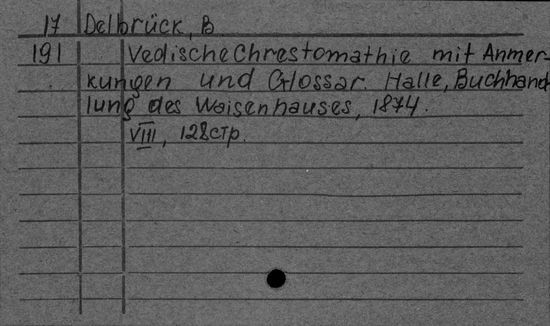 17 Delbrück, B
191 Vedische Chrestomathie mit Anmer-
kungen und Glossar. Halle, Buchhand
lung des Waisenhauses, 1874.
VIII, 128 стр.